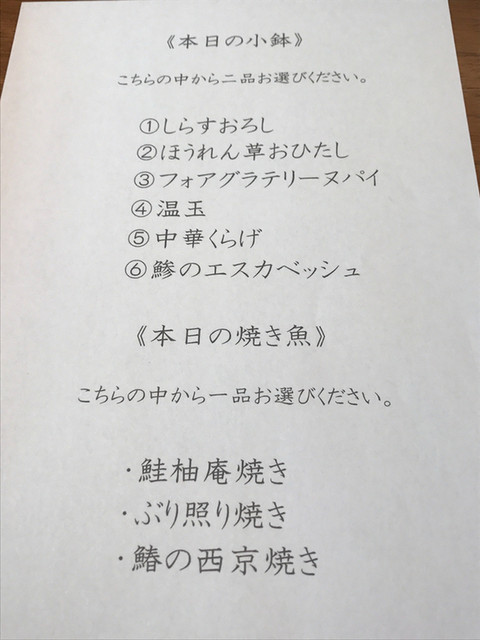 《本日の小鉢》
こちらの中から二品お選びください。
①しらすおろし
②ほうれん草おひたし
③フォアグラテリーヌパイ
④温玉
⑤中華くらげ
⑥鯵のエスカベッシュ
《本日の焼き魚》
こちらの中から一品お選びください。
・鮭柚庵焼き
・ぶり照り焼き
・鰆の西京焼き